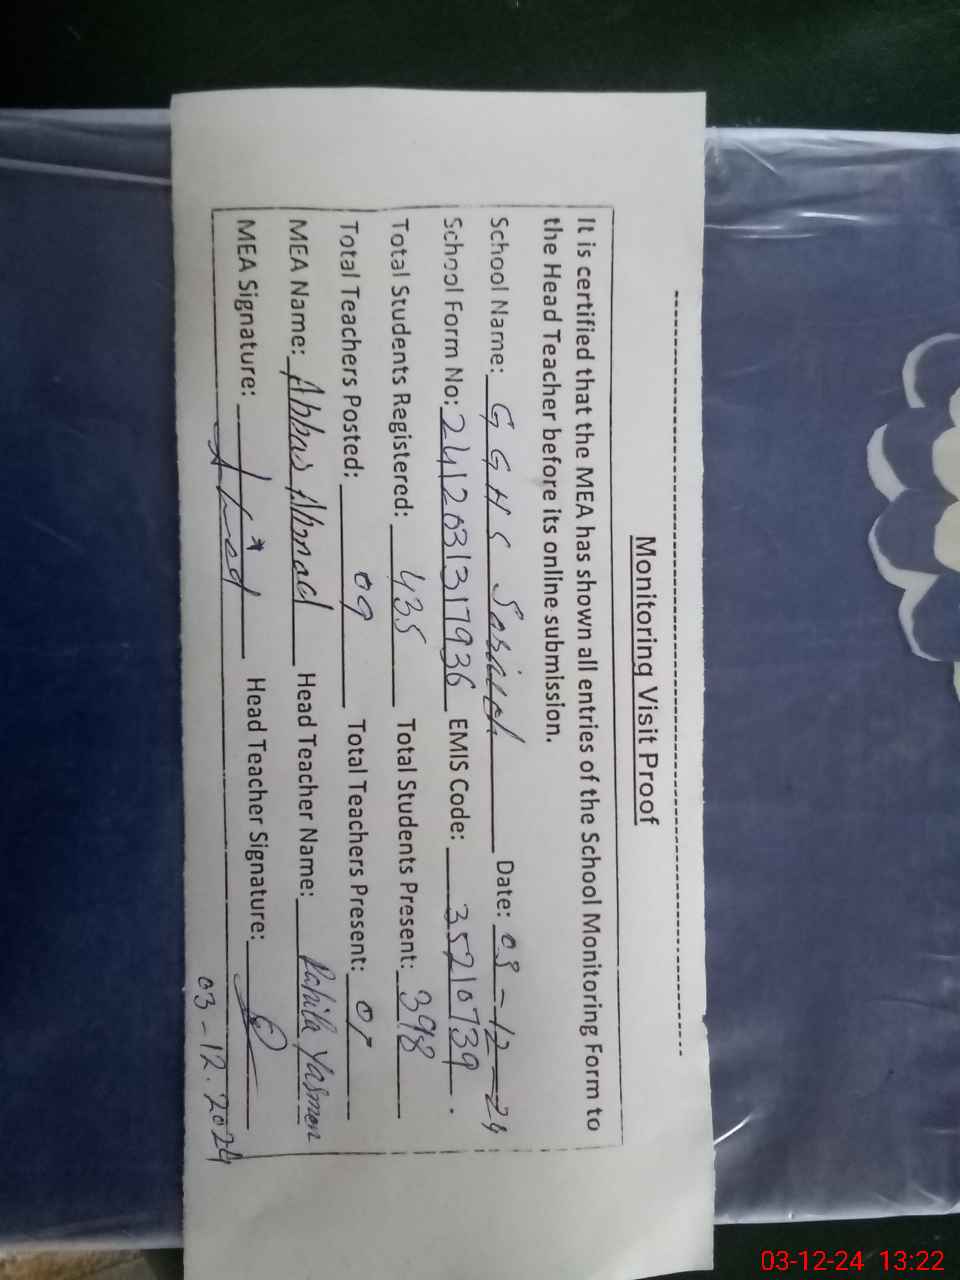 Monitoring Visit Proof
It is certified that the MEA has shown all entries of the School Monitoring Form to
the Head Teacher before its online submission.
School Name: G G H S Date: 03-12-24
School Form No: 2412031317936 EMIS Code: 35210739.
Total Students Registered: 435 Total Students Present: 398
Total Teachers Posted: 09 Total Teachers Present:
MEA Name: Abbas Ahmad Head Teacher Name: Rahila Yasmen
MEA Signature: Head Teacher Signature:
03-12-2024
03-12-24 13:22